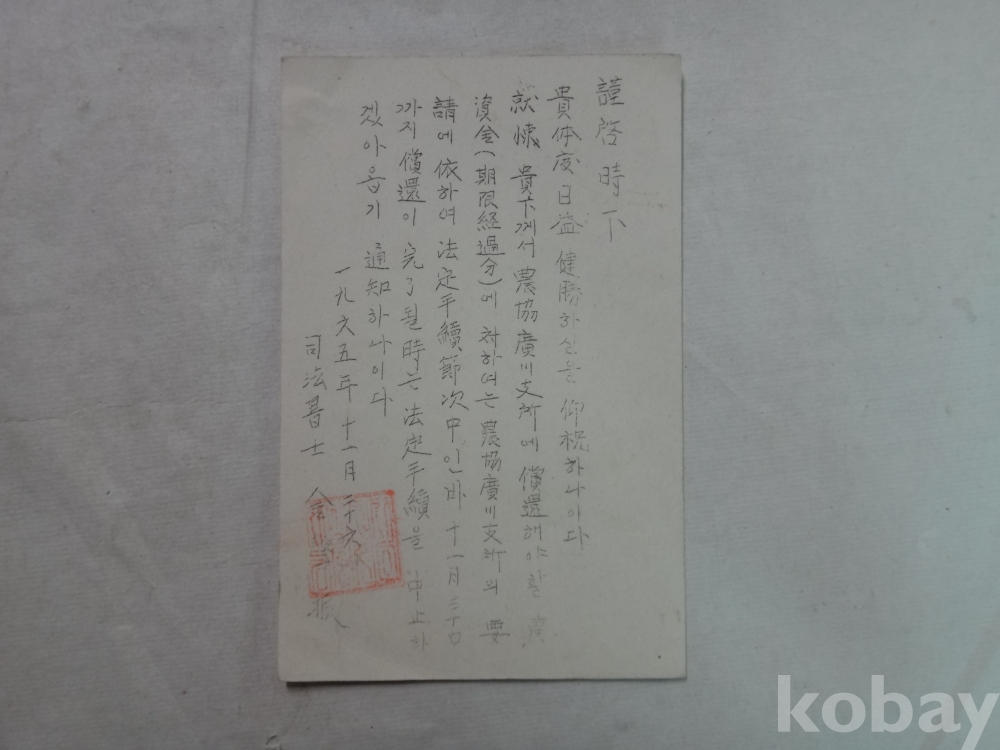 謹啓時下
貴体度日益健勝하심을 仰祝하나이다
就悚 貴下께서 農協廣川支所에 償還해야할
資金(期限経過分)에 対하여는 農協廣川支所의 要
請에 依하여 法定手續節次中인바 十一月三十日
까지 償還이 完了될時는 法定手續을 中止하
겠아옵기 通知하나이다
一九六五年 十一月二十六
司法書士 金
kobay